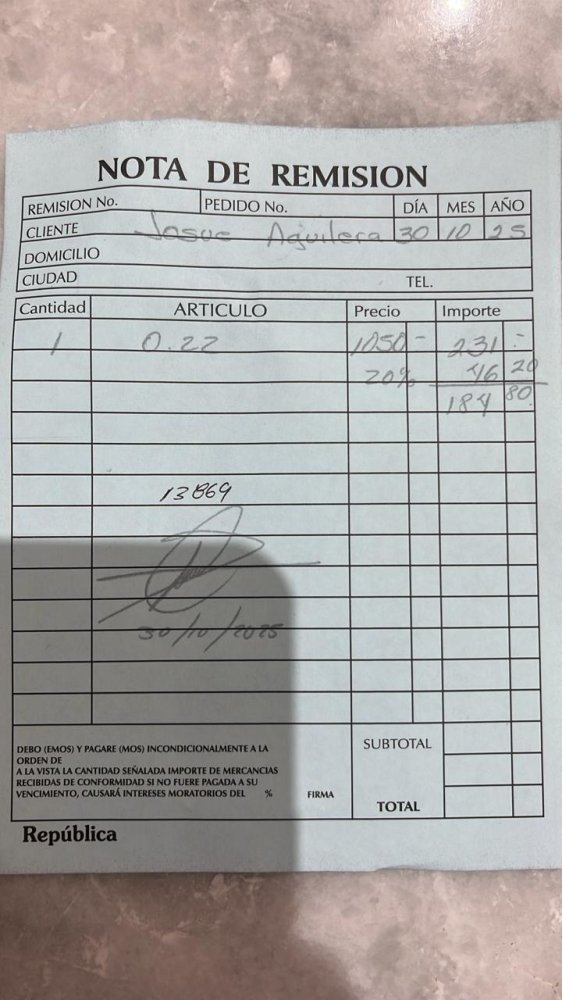 NOTA DE REMISION
REMISION No. PEDIDO No. DÍA MES AÑO
CLIENTE Josue Aguilera 30 10 25
DOMICILIO
CIUDAD TEL.
Cantidad ARTICULO Precio Importe
1 0.22 1050 - 231 .-
20% 46 20
184 80
13869
30/10/2025
DEBO (EMOS) Y PAGARE (MOS) INCONDICIONALMENTE A LA
ORDEN DE
A LA VISTA LA CANTIDAD SEÑALADA IMPORTE DE MERCANCIAS
RECIBIDAS DE CONFORMIDAD SI NO FUERE PAGADA A SU
VENCIMIENTO, CAUSARÁ INTERESES MORATORIOS DEL % FIRMA
SUBTOTAL
TOTAL
República